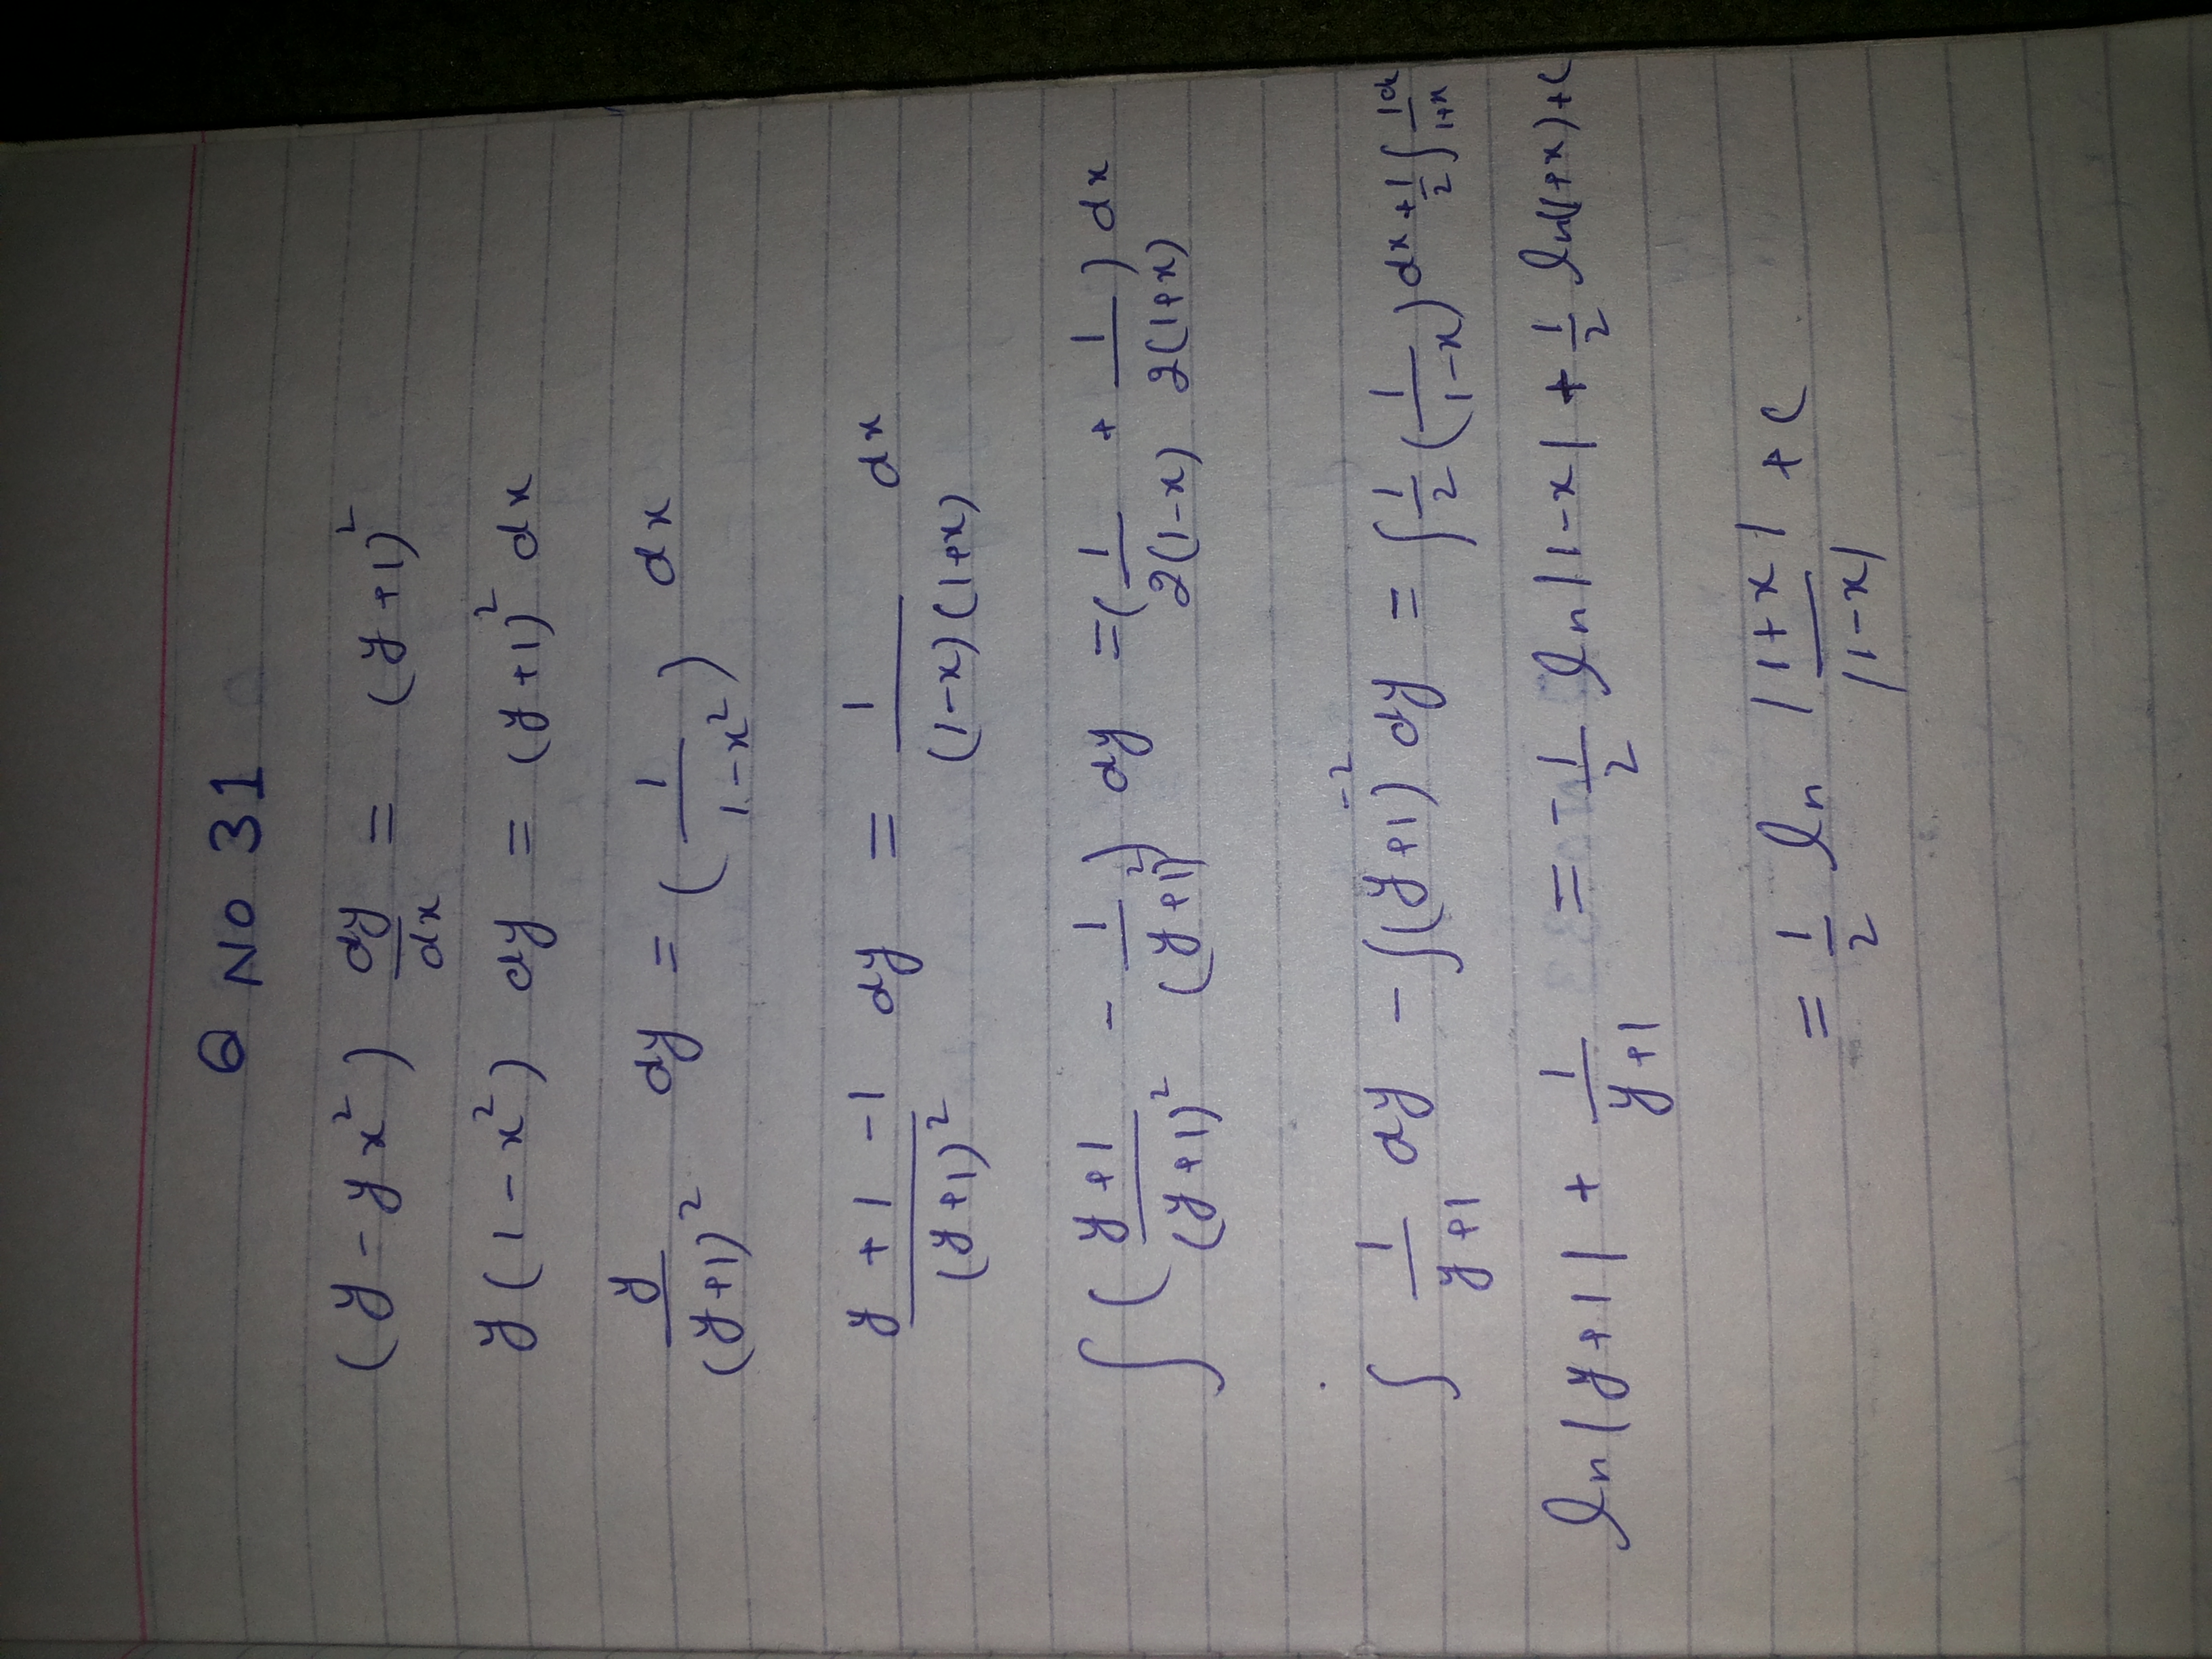 Q No 31
(y - yx²) dy/dx = (y+1)²
y(1-x²) dy = (y+1)² dx
y/(y+1)² dy = (1/(1-x²)) dx
(y+1-1)/(y+1)² dy = 1/((1-x)(1+x)) dx
∫((y+1)/(y+1)² - 1/(y+1)²) dy = (1/(2(1-x)) + 1/(2(1+x))) dx
∫ 1/(y+1) dy - ∫(y+1)⁻² dy = ∫ 1/2 (1/(1-x)) dx + 1/2 ∫ 1dx/(1+x)
ln|y+1| + 1/(y+1) = -1/2 ln|1-x| + 1/2 ln(1+x) + c
= 1/2 ln |1+x|/|1-x| + c